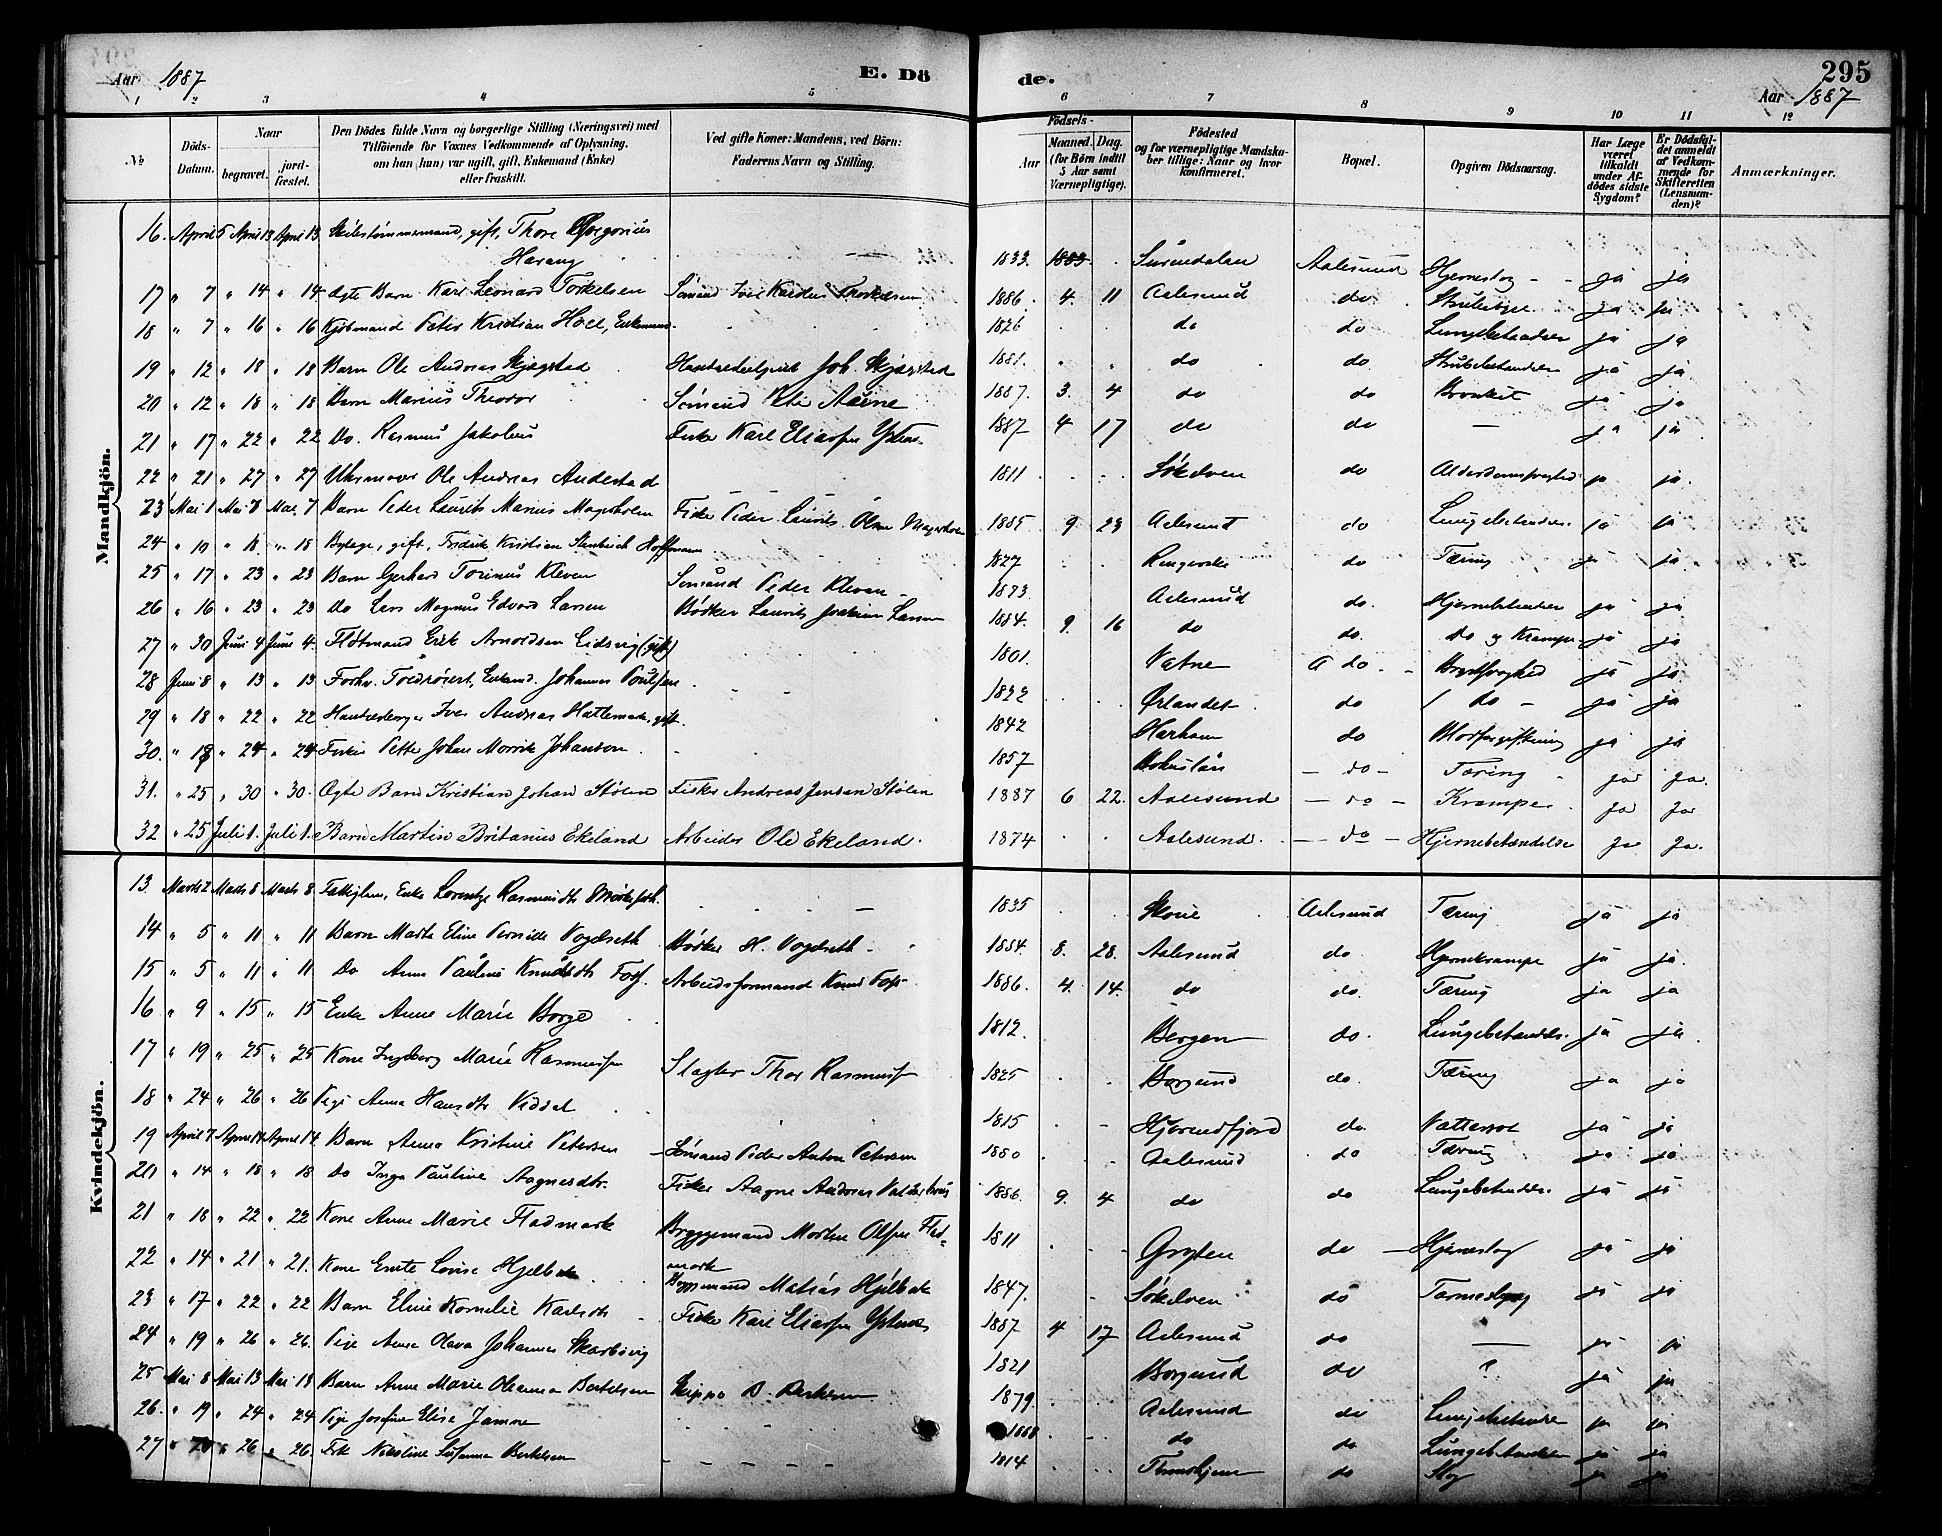 Aar 1887
E. Dö
de.
295
Aar 1887
1 2 3 4 5 6 7 8 9 10 11 12
№
Döds-Datum.
Naar
begravet.
jordfæstet.
Den Dödes fulde Navn og borgerlige Stilling (Næringsvei) med
Tilföiende for Voxnes Vedkommende af Oplysning,
om han (hun) var ugift, gift, Enkemand (Enke)
eller fraskilt.
Ved gifte Koner: Mandens, ved Börn:
Faderens Navn og Stilling.
Födsels-
Aar
Maaned. Dag.
(for Börn indtil
5 Aar samt
Værnepligtige).
Födested
og for værnepligtige Mandskaber tillige: Naar og hvor
konfirmeret.
Bopæl.
Opgiven Dödsaarsag.
Har Læge
været
tilkaldt
under Afdödes sidste
Sygdom?
Er Dödsfaldet anmeldt
af Vedkommende for
Skifteretten
(Lensmanden)?
Anmærkninger.
Mandkjön.
16. April 5 April 13 April 13 gift, Thore Gregorius Harang 1833. Surendalen Aalesund Hjerneslag ja ja
17 " 7 " 14 " 14 Ægte Barn Karl Leonard Torkelsen Sømand 1886. 4. 11 Aalesund do Strubehoste ja ja
18 " 7 " 16 " 16 Kjøbmand Peter Kristian Hoel, Enkemand. 1826 do do Lungebetændelse ja ja
19 " 12 " 18 " 18 Barn Ole Andreas Skjegstad Joh. Skjegstad 1881. do do Strubebetændelse ja ja
20 " 12 " 18 " 18 Barn Marius Theodor Sømand Peter Aarne 1887. 3. 4 do do Bronkit ja ja
21 " 17 " 22 " 22 Do. Rasmus Jakobus Fisker Karl Eliassen Ystenes 1887 4 17 do do — ja ja
22 " 21 " 27 " 27 Uhrmager Ole Andreas Andestad 1811 Søkelven do Alderdomssvaghed ja ja
23 Mai 1 Mai 7 Mai 7 Barn Peder Laurits Marius Magerholm Fisker Peder Laurits Olsen Magerholm 1885 9 23 Aalesund do Lungebetændelse ja ja
24 " 10 " 18 " 18 gift, Fredrik Kristian Steinbeich Hoffmann 1827 Ringerike do Tæring ja ja
25 " 17 " 23 " 23 Barn Gerhard Torinus Kleven Sømand Peder Kleven 1873. Aalesund do. Hjernebetændelse ja ja
26 " 16 " 23 " 23 Do Lars Magnus Edvard Larsen Bødker Laurits Joakim Larsen 1884. 9. 16 do do. do og Krampe ja ja
27 " 30 Juni 4 Juni 4. Fløtmand Erik Arnoldsen Eidsvig (gift) 1801. Vatne do. Brystsvaghed ja ja
28 Juni 8 " 13 " 13 Forhv. Enkemd. Johannes Poulsen 1822 Ørlandet do do ja ja
29 " 18 " 22 " 22 Iver Andreas Hattemark, gift. 1842 Harham do Blodforgiftning ja ja
30. " 18 " 24 " 24 Fisker Petter Johan Johanson 1857 Bohuslän — do — Tæring ja ja.
31. " 25 " 30 " 30. Ægte Barn Kristian Johan Stølen Fisker Andreas Jensen Stølen 1887 6 22. Aalesund — do — Krampe ja ja
32 " 25 Juli 1. Juli 1. Barn Martin Britanius Ekeland Arbeider Ole Ekeland. 1874 Aalesund. — do — Hjernebetændelse ja ja.
Kvindekjön.
13. Marts 2 Marts 8 Marts 8 Enke Lorentze Rasmusdtr. 1835 Aalesund Tæring ja ja
14 " 5 " 11 " 11 Barn Marte Eline Pernille Vegdseth Bødker H. Vegdseth 1884. 8. 28. Aalesund do. Hjernekrampe ja ja.
15 " 5 " 11 " 11 Do Anne Pauline Knudsdtr. Foss. Arbeidsformand Knud Foss 1886. 4. 14. do do. Tæring ja ja
16 " 9 " 15 " 15 Enke Anne Marie Borge 1812. Bergen do. Lungebetændels. ja ja
17 " 19 " 25 " 25 Kone Ingeborg Marie Rasmussen Slagter Thor Rasmussen 1825 Borgund do. Tæring ja ja
18 " 24 " 26 " 26 Pige Anna Hansdtr 1815 Hjørendfjord do. Vattersot ja ja
19 April 7 April 14 April 14 Barn Anna Kristine Petersen Sømand Peder Anton Petersen 1880 Aalesund do Tæring ja ja
20 " 14 " 18 " 18 Do Inga Pauline Aagnesdtr. Fisker Aagne Andreas 1886. 9. 4 do do Lungebetændelse ja ja
21 " 18 " 22 " 22 Kone Anne Marie Fladmark Bryggemand Morten Olsen Flad-
mark 1811 Gryten do Hjerneslag ja ja
22 " 14 " 21 " 21. Kone Louise Hjelbak Matias Hjelbak 1847. Søkelven do ja ja
23 " 17 " 22 " 22 Barn Eline Kornelie Karlsdtr Fisker Karl Eliassen Ystenes 1887 4 17 Aalesund do — ja ja
24 " 19 " 26 " 26. Pige Anne Olava Johannes Skarbøvig 1821 Borgund do ? ja ja
25 Mai 8 Mai 13 Mai 13 Barn Anne Marie Oleanna Bertelsen 1879. Aalesund do Lungebetændelse ja ja
26. " 19 " 24 " 24 Pige Josefine Elise Jamne do do Lungebetændelse ja ja
27 " 20 " 26 " 26. Nikoline Susanna Bertelsen 1814 Throndhjem do Slag ja ja